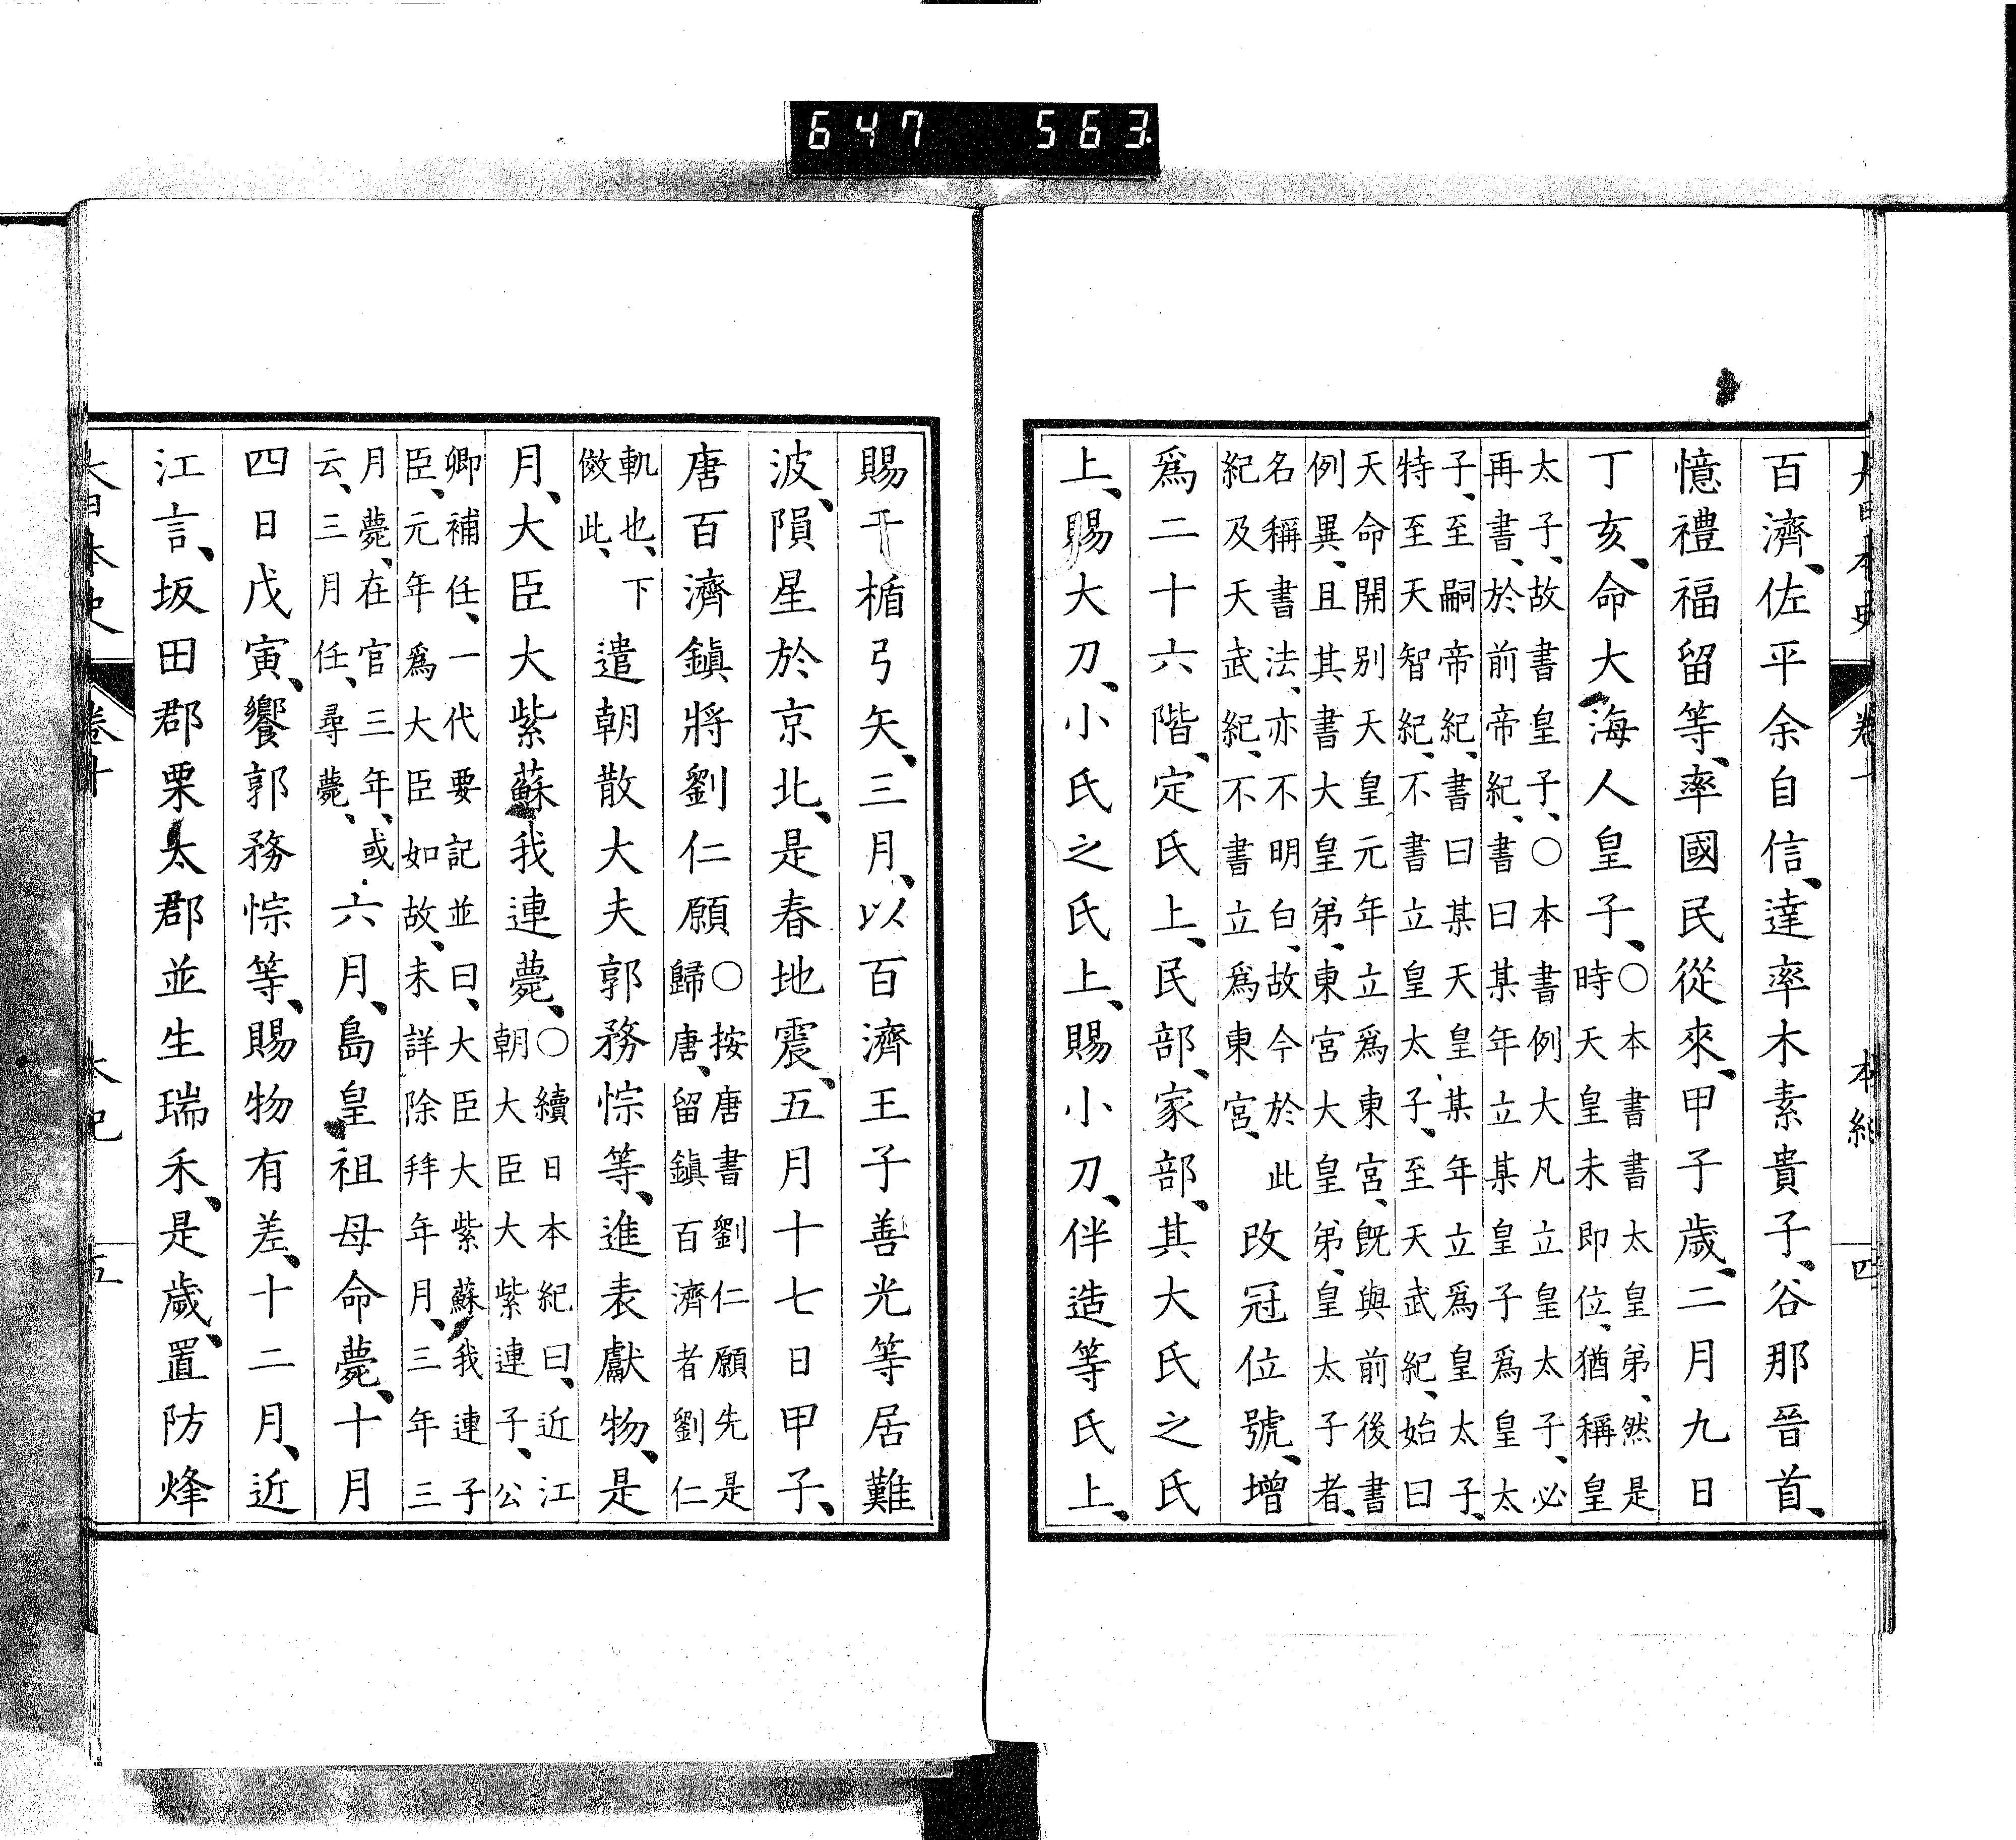 647 563.
大日本史 卷十 本紀 四
百濟、佐平余自信、達率木素貴子、谷那晉首、
憶禮福留等、率國民從來、甲子歲、二月九日
丁亥、命大海人皇子、
○本書書太皇弟、然是
時天皇未即位、猶稱皇
太子、故書皇子、○本書例大凡立皇太子、必
再書、於前帝紀、書曰某年立某皇子爲皇太
子、至嗣帝紀、書曰某天皇某年立爲皇太子、
特至天智紀、不書立皇太子、至天武紀、始曰
天命開別天皇元年立爲東宮、旣與前後書
例異、且其書大皇弟、東宮大皇弟、皇太子者、
名稱書法、亦不明白、故今於此
紀及天武紀、不書立爲東宮、
改冠位號、增
爲二十六階、定氏上、民部、家部、其大氏之氏
上、賜大刀、小氏之氏上、賜小刀、伴造等氏上、
賜干楯弓矢、三月、以百濟王子善光等居難
波、隕星於京北、是春地震、五月十七日甲子、
唐百濟鎭將劉仁願
○按唐書劉仁願先是
歸唐、留鎭百濟者劉仁
軌也、下
倣此、
遣朝散大夫郭務悰等、進表獻物、是
月、大臣大紫蘇我連薨、
○續日本紀曰、近江
朝大臣大紫連子、公
卿補任、一代要記並曰、大臣大紫蘇我連子
臣、元年爲大臣如故、未詳除拜年月、三年三
月薨、在官三年、或
云、三月任、尋薨、
六月、島皇祖母命薨、十月
四日戊寅、饗郭務悰等、賜物有差、十二月、近
江言、坂田郡栗太郡並生瑞禾、是歲、置防烽
大日本史 卷十 本紀 五